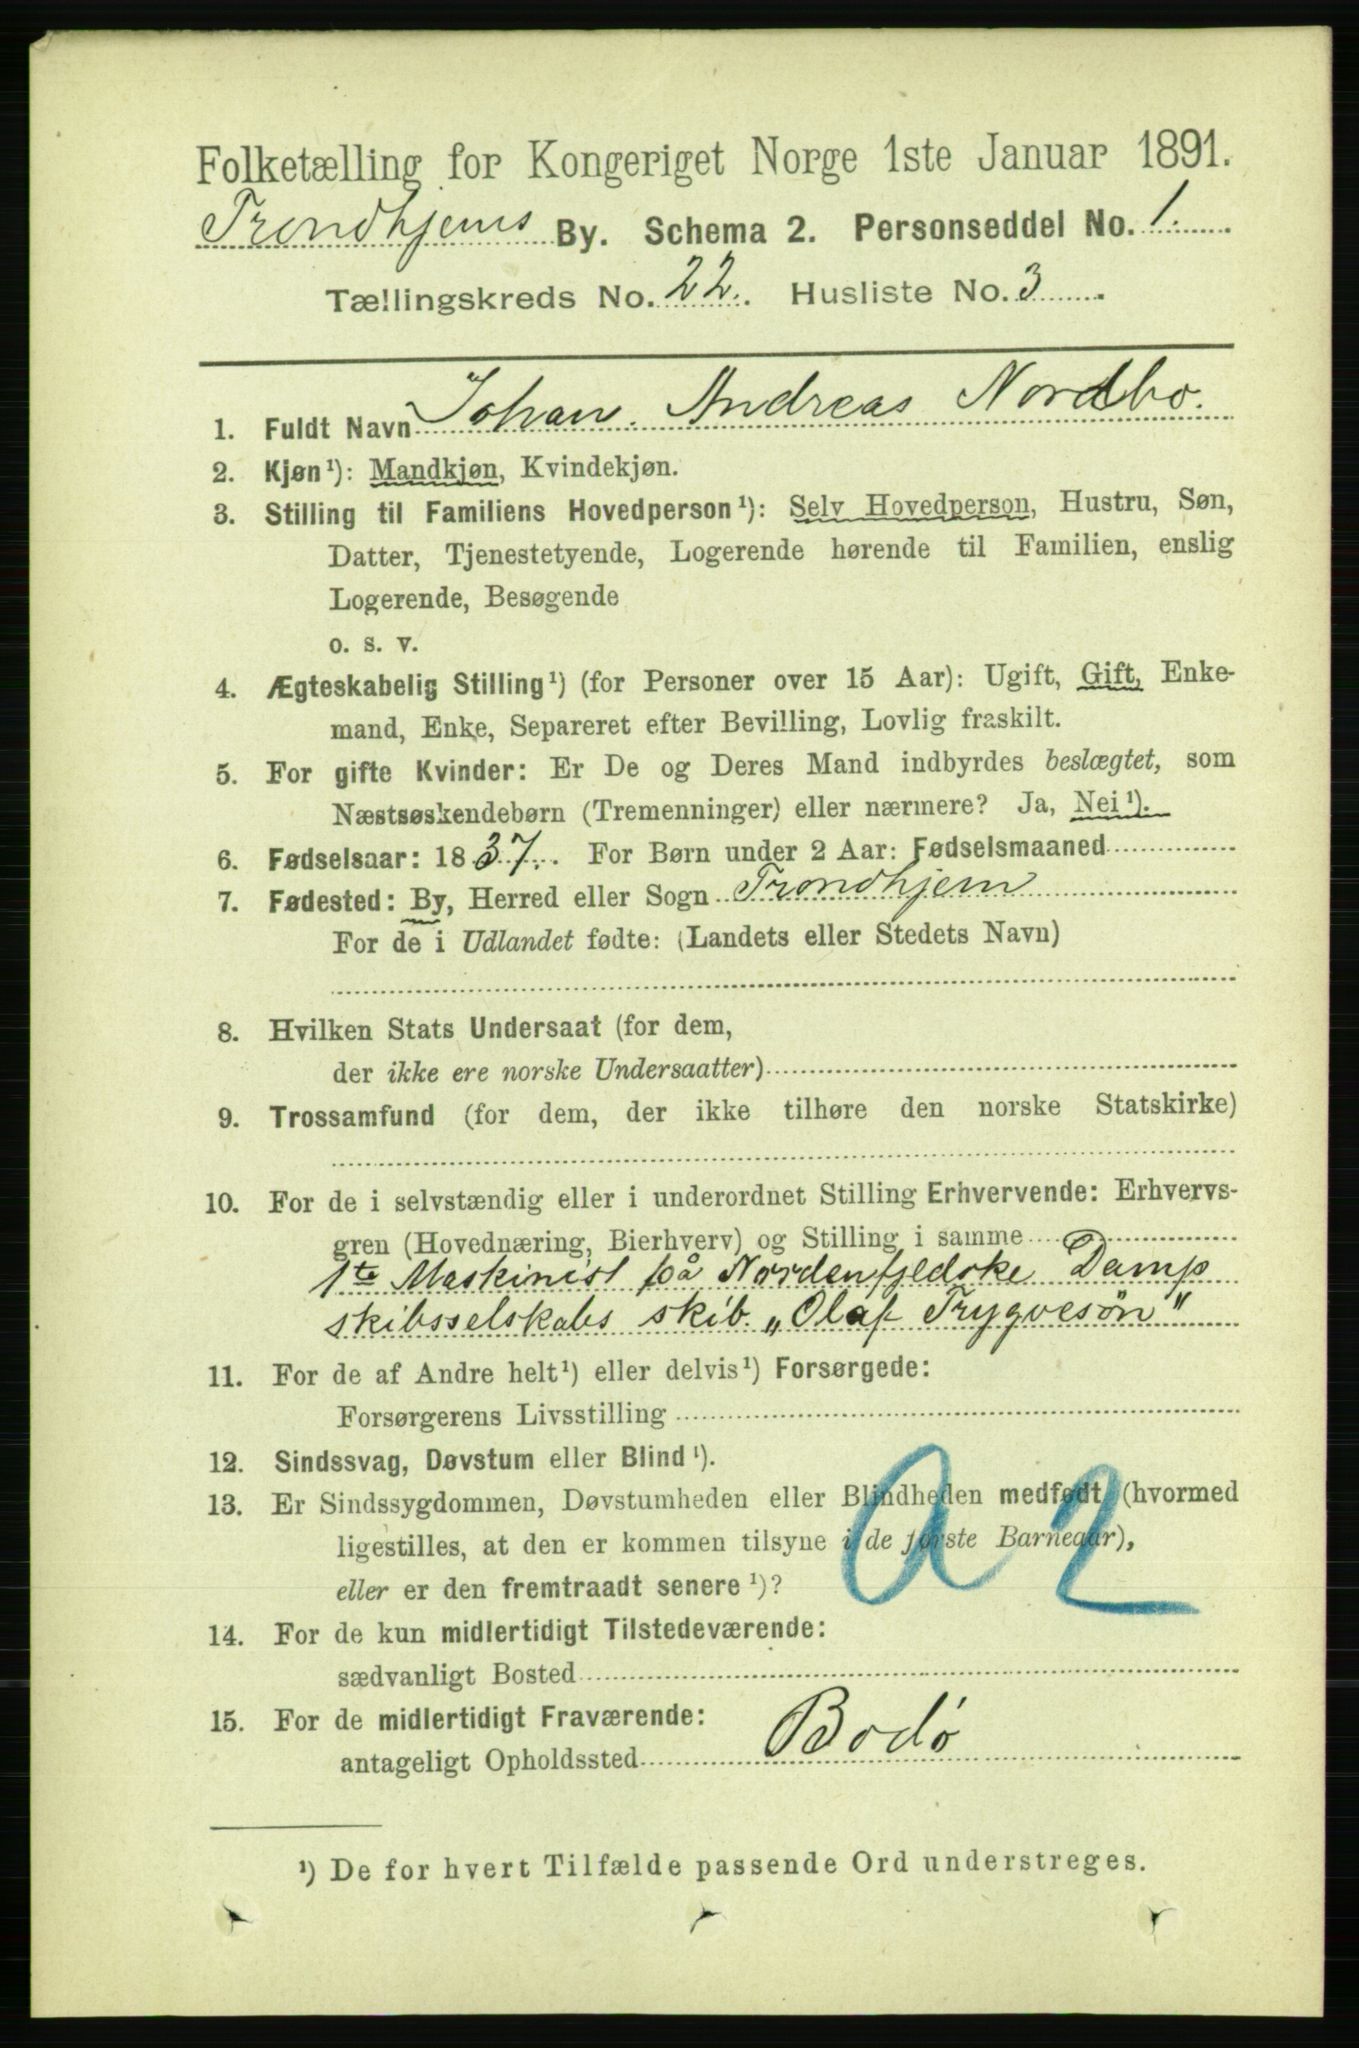 Folketælling for Kongeriget Norge 1ste Januar 1891.
Trondhjems By. Schema 2. Personseddel No. 1.
Tællingskreds No. 22. Husliste No. 3
1. Fuldt Navn Johan Andreas Nordbo.
2. Kjøn¹): Mandkjøn, Kvindekjøn.
3. Stilling til Familiens Hovedperson¹): Selv Hovedperson, Hustru, Søn,
Datter, Tjenestetyende, Logerende hørende til Familien, enslig
Logerende, Besøgende
o. s. v.
4. Ægteskabelig Stilling¹) (for Personer over 15 Aar): Ugift, Gift, Enke-
mand, Enke, Separeret efter Bevilling, Lovlig fraskilt.
5. For gifte Kvinder: Er De og Deres Mand indbyrdes beslægtet, som
Næstsøskendebørn (Tremenninger) eller nærmere? Ja, Nei¹).
6. Fødselsaar: 1837. For Børn under 2 Aar: Fødselsmaaned
7. Fødested: By, Herred eller Sogn Trondhjem
For de i Udlandet fødte: (Landets eller Stedets Navn)
8. Hvilken Stats Undersaat (for dem,
der ikke ere norske Undersaatter)
9. Trossamfund (for dem, der ikke tilhøre den norske Statskirke)
10. For de i selvstændig eller i underordnet Stilling Erhvervende: Erhvervs-
gren (Hovednæring, Bierhverv) og Stilling i samme
1te Maskinist på Nordenfjeldske Damp
skibsselskabs skib. „Olaf Trygvesøn"
11. For de af Andre helt¹) eller delvis¹) Forsørgede:
Forsørgerens Livsstilling
12. Sindssvag, Døvstum eller Blind¹).
13. Er Sindssygdommen, Døvstumheden eller Blindheden medfødt (hvormed
ligestilles, at den er kommen tilsyne i de første Barneaar),
eller er den fremtraadt senere¹)?
a2
14. For de kun midlertidigt Tilstedeværende:
sædvanligt Bosted
15. For de midlertidigt Fraværende:
antageligt Opholdssted Bodø
¹) De for hvert Tilfælde passende Ord understreges.